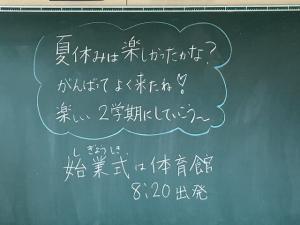 夏休みは楽しかったかな?
がんばってよく来たね♡
楽しい 2学期にしていこう〜
しぎょうしき
始業式は体育館
8:20出発